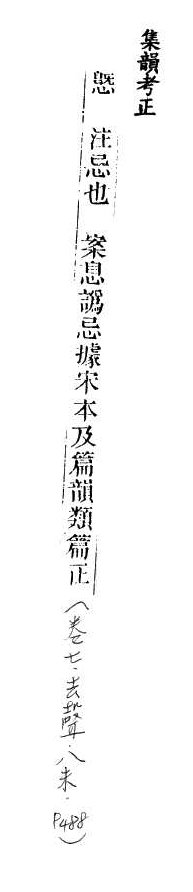 集韻考正
注忌也 案息譌忌據宋本及篇韻類篇正(卷七·去聲·八未·P488)